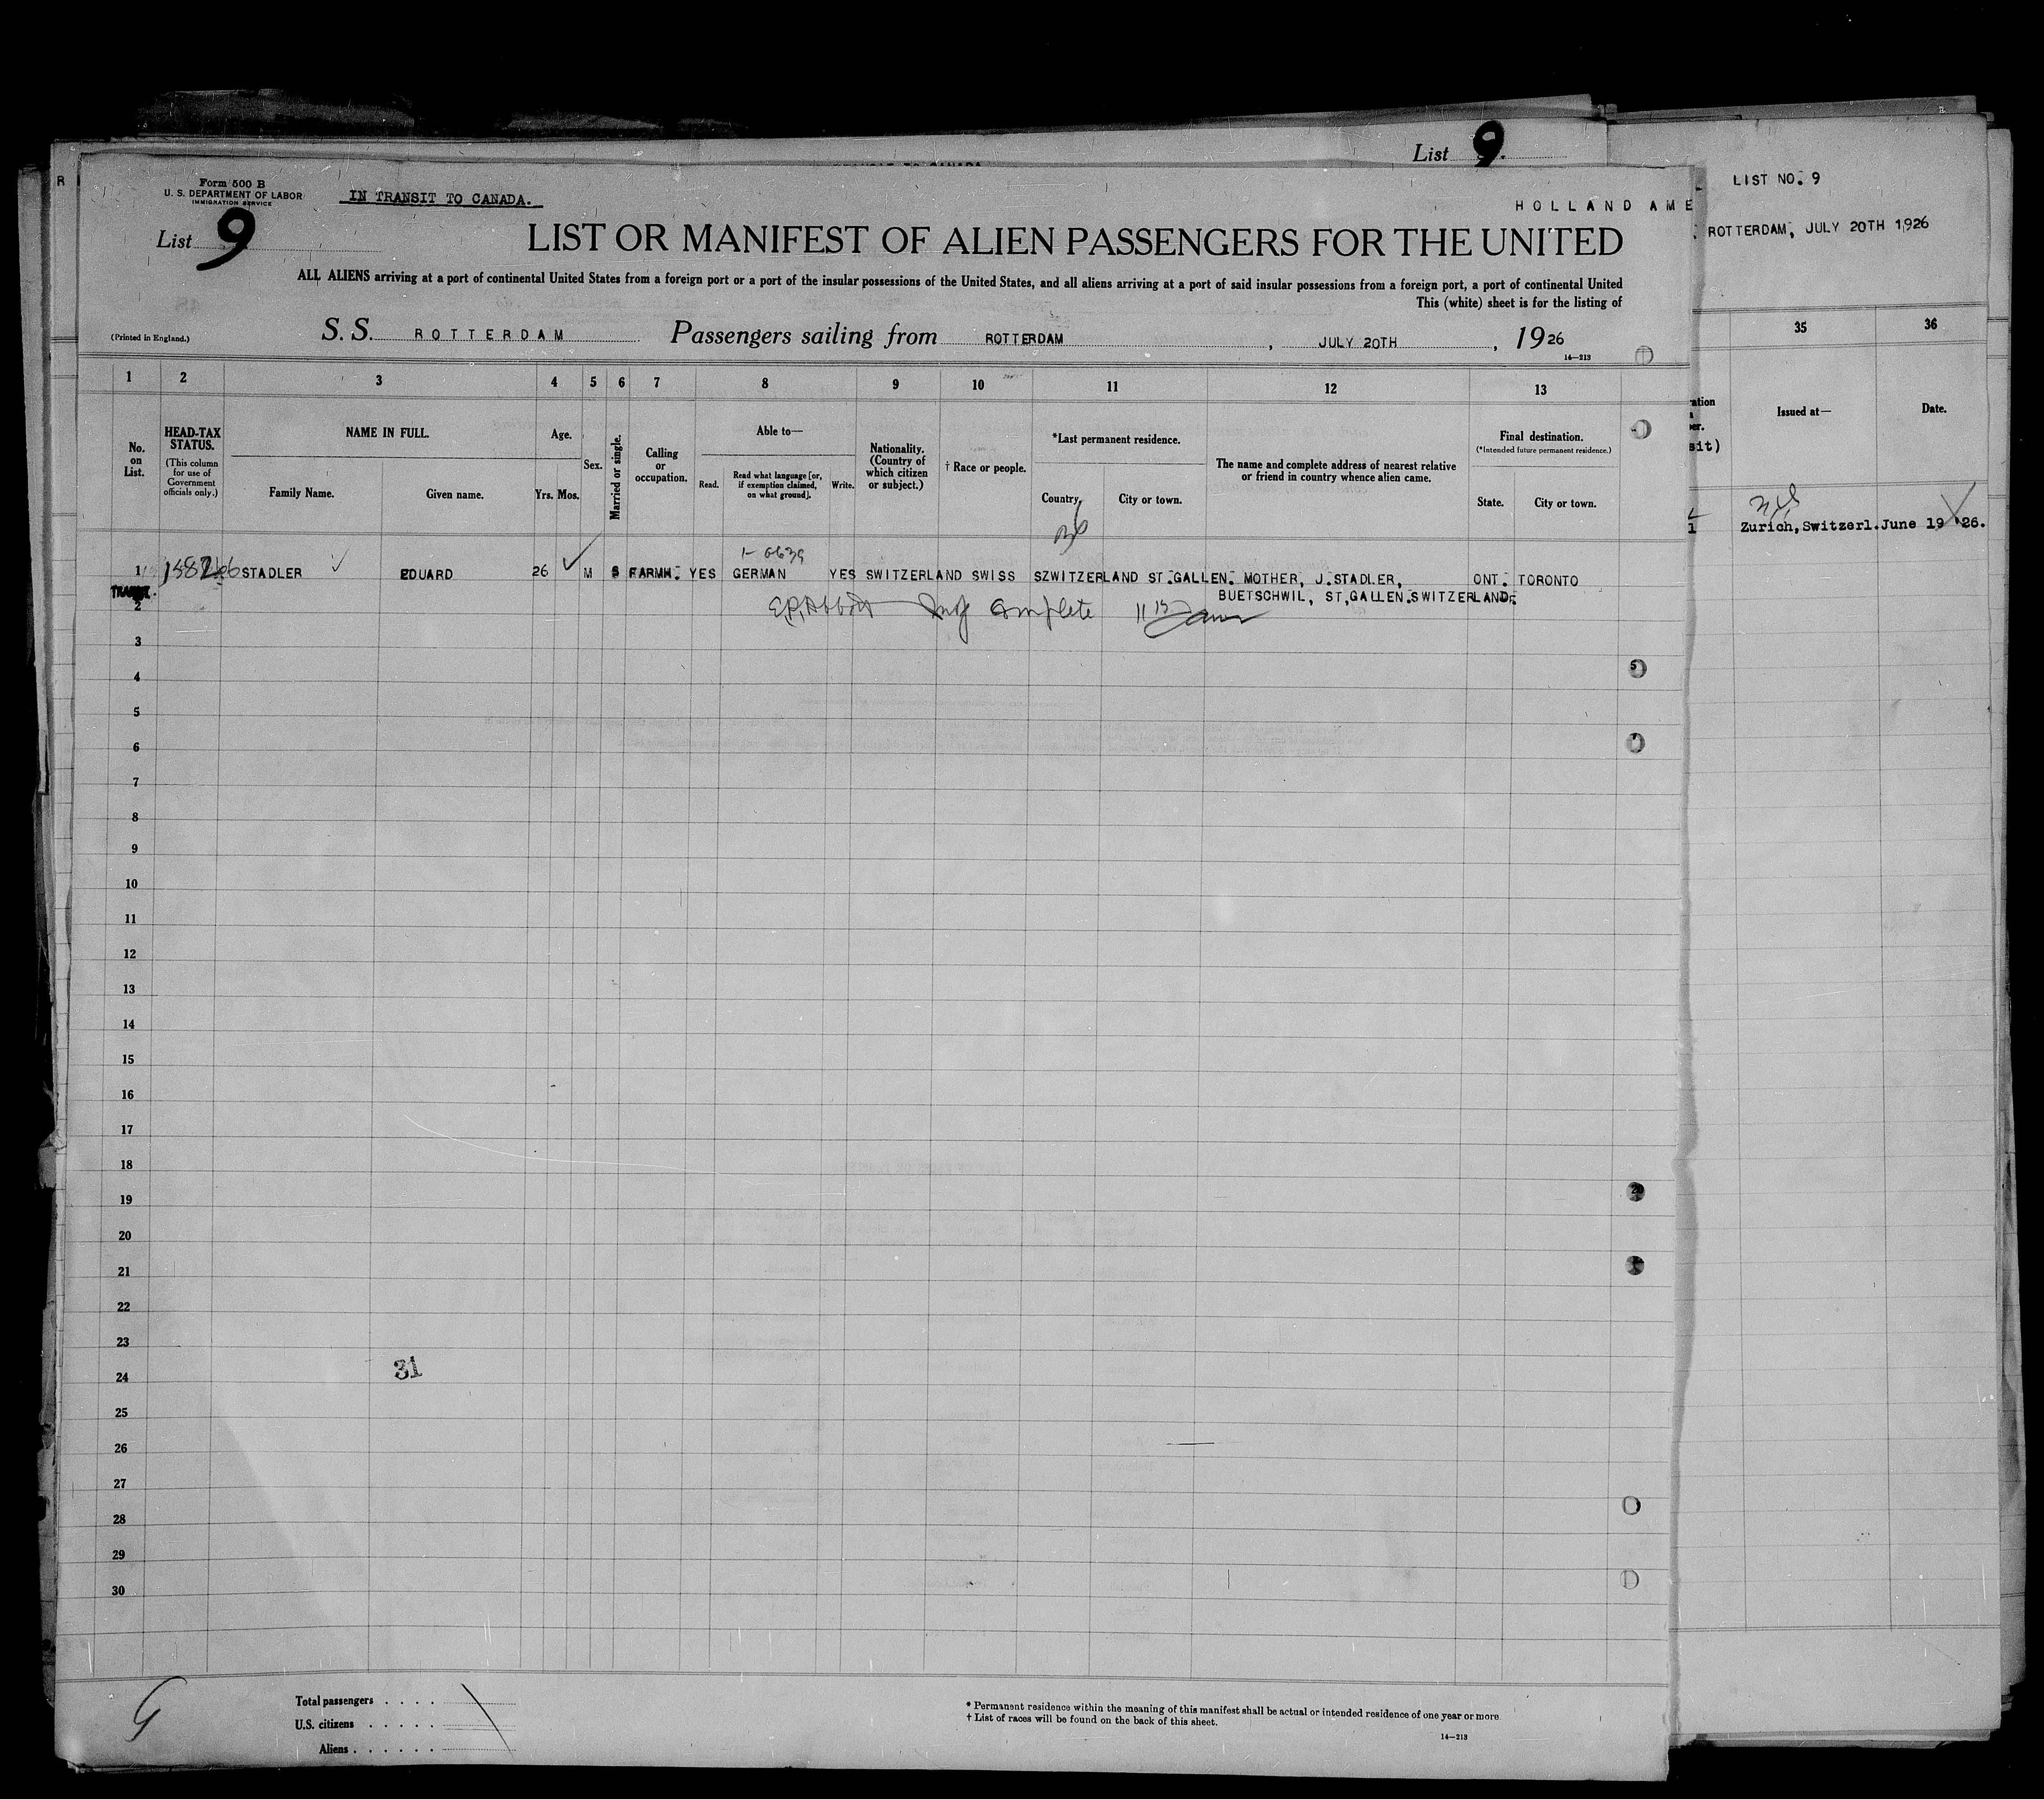 List 9.
R
LIST NO. 9
Form 500 B
U. S. DEPARTMENT OF LABOR
IMMIGRATION SERVICE
IN TRANSIT TO CANADA.
HOLLAND AME
List 9
LIST OR MANIFEST OF ALIEN PASSENGERS FOR THE UNITED
ROTTERDAM, JULY 20TH 1926
ALL ALIENS arriving at a port of continental United States from a foreign port or a port of the insular possessions of the United States, and all aliens arriving at a port of said insular possessions from a foreign port, a port of continental United
This (white) sheet is for the listing of
(Printed in England.)
S. S. ROTTERDAM Passengers sailing from ROTTERDAM , JULY 20TH , 1926
14—213
1 2 3 4 5 6 7 8 9 10 11 12 13 35 36
No. on List.
HEAD-TAX STATUS.
(This column for use of Government officials only.)
NAME IN FULL.
Family Name. Given name.
Age.
Yrs. Mos.
Sex.
Married or single.
Calling or occupation.
Able to—
Read. Read what language [or, if exemption claimed, on what ground]. Write.
Nationality. (Country of which citizen or subject.)
† Race or people.
*Last permanent residence.
Country. City or town.
The name and complete address of nearest relative or friend in country whence alien came.
Final destination.
(*Intended future permanent residence.)
State. City or town.
Issued at—
Date.
sit)
Zurich, Switzerl. June 19 '26.
1 STADLER EDUARD 26 M S FARMH. YES GERMAN YES SWITZERLAND SWISS SZWITZERLAND ST.GALLEN. MOTHER, J.STADLER, ONT. TORONTO
TRANSIT.
BUETSCHWIL, ST,GALLEN.SWITZERLAND.
2
E.P. Abbott complete
3
4
5
6
7
8
9
10
11
12
13
14
15
16
17
18
19
20
21
22
23
31
24
25
26
27
28
29
30
Total passengers . . . .
U.S. citizens . . . . .
Aliens . . . . . .
* Permanent residence within the meaning of this manifest shall be actual or intended residence of one year or more.
† List of races will be found on the back of this sheet.
14—213